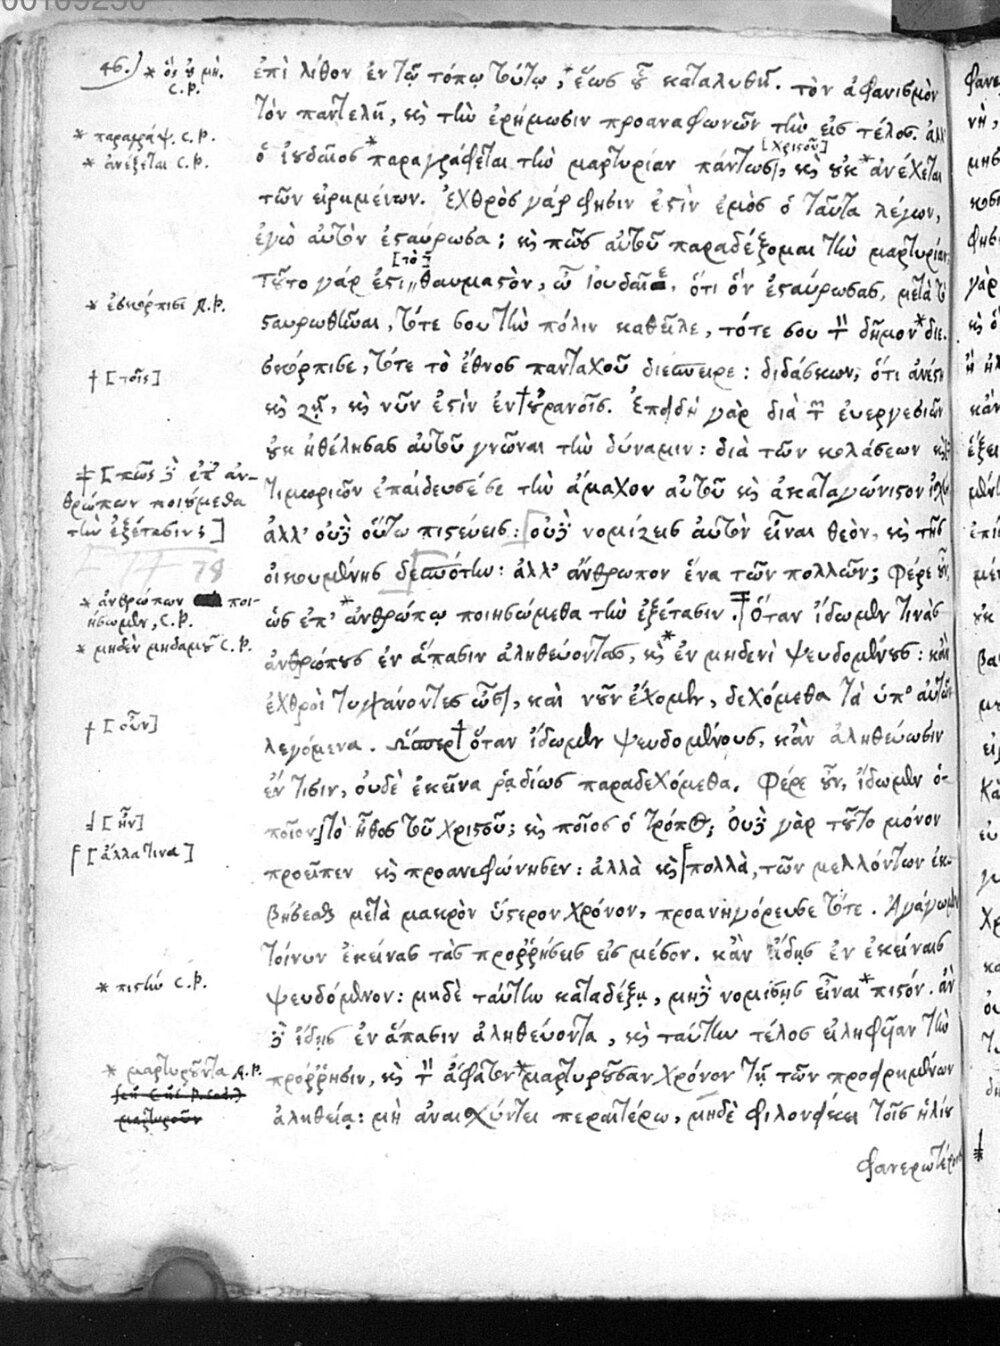 00109250
46.) * ὃς οὐ μὴ. C.P.
ἐπὶ λίθον ἐν τῷ τόπῳ τούτῳ, * ἕως οὗ καταλυθῇ. τὸν ἀφανισμὸν
τὸν παντελῆ, καὶ τὴν ἐρήμωσιν προαναφωνῶν τὴν εἰς τέλος. ἀλλ'
* παραγράψ. C.P.
* ἀνέξεται C.P.
[Χριστοῦ]
ὁ ἰουδαῖος * παραγράφεται τὴν μαρτυρίαν πάντως, καὶ οὐκ * ἀνέχεται
τῶν εἰρημένων. ἐχθρὸς γάρ φησιν ἐστὶν ἐμὸς ὁ ταῦτα λέγων,
ἐγὼ αὐτὸν ἐσταύρωσα; καὶ πῶς αὐτοῦ παραδέξομαι τὴν μαρτυρίαν;
[τὸ
τοῦτο γάρ ἐστι θαυμαστὸν, ὦ ἰουδαῖε, ὅτι ὃν ἐσταύρωσας, μετὰ τὸ
* ἐσκόρπισε A.P.
σταυρωθῆναι, τότε σου τὴν πόλιν καθεῖλε, τότε σου τὸν δῆμον * διε-
σκόρπισε, τότε τὸ ἔθνος πανταχοῦ διέσπειρε: διδάσκων, ὅτι ἀνέστη
† [τοῖς]
καὶ ζῇ, καὶ νῦν ἐστὶν ἐν † οὐρανοῖς. Ἐπειδὴ γὰρ διὰ τῶν εὐεργεσιῶν
οὐκ ἠθέλησας αὐτοῦ γνῶναι τὴν δύναμιν: διὰ τῶν κολάσεων καὶ
‡ [πῶς δὲ ἐπ' ἀν-
θρώπων ποιούμεθα
τὴν ἐξέτασιν;]
τιμωριῶν ἐπαίδευσέ σε τὴν ἄμαχον αὐτοῦ καὶ ἀκαταγώνιστον ἰσχύν
ἀλλ' οὐδὲ οὕτω πιστεύεις: οὐδὲ νομίζεις αὐτὸν εἶναι θεὸν, καὶ τῆς
78
οἰκουμένης δεσπότην: ἀλλ' ἄνθρωπον ἕνα τῶν πολλῶν; Φέρε οὖν,
* ἀνθρώπων ποι-
ήσωμεν, C.P.
ὡς ἐπ' * ἀνθρώπῳ ποιησώμεθα τὴν ἐξέτασιν. ‡ Ὅταν ἴδωμεν τινὰς
* μηδὲν μηδαμοῦ C.P.
ἀνθρώπους ἐν ἅπασιν ἀληθεύοντας, καὶ * ἐν μηδενὶ ψευδομένους: κἂν
ἐχθροὶ τυγχάνοντες ὦσι, κἂν νοῦν ἔχομεν, δεχόμεθα τὰ ὑπ' αὐτῶν
† [οὖν]
λεγόμενα. Ὥσπερ † ὅταν ἴδωμεν ψευδομένους, κἂν ἀληθεύωσιν
ἔν τισιν, οὐδὲ ἐκεῖνα ῥαδίως παραδεχόμεθα. Φέρε οὖν, ἴδωμεν ὁ-
[ἦν]
ποῖον τὸ ἦθος τοῦ Χριστοῦ; καὶ ποῖος ὁ τρόπος; Οὐδὲ γὰρ τοῦτο μόνον
[ἀλλα τινα]
προεῖπεν καὶ προανεφώνησεν: ἀλλὰ καὶ πολλὰ, τῶν μελλόντων ἐκ-
βήσεσθαι μετὰ μακρὸν ὕστερον χρόνον, προανηγόρευσε τότε. Ἀγάγωμεν
τοίνυν ἐκείνας τὰς προῤῥήσεις εἰς μέσον. κἂν ἴδῃς ἐν ἐκείναις
* πιστὴν C.P.
ψευδόμενον: μηδὲ ταύτην καταδέξῃ, μηδὲ νομίσῃς εἶναι * πιστόν. ἂν
δὲ ἴδῃς ἐν ἅπασιν ἀληθεύοντα, καὶ ταύτην τέλος εἰληφυῖαν τὴν
* μαρτυροῦντα A.P.
πρόῤῥησιν, καὶ τὸν * μαρτυρῆσαν χρόνον τῇ τῶν προειρημένων
ἀληθείᾳ: μὴ ἀναισχύντει περαιτέρω, μηδὲ φιλονείκει τοῖς ἡλίου
φανερωτέροις